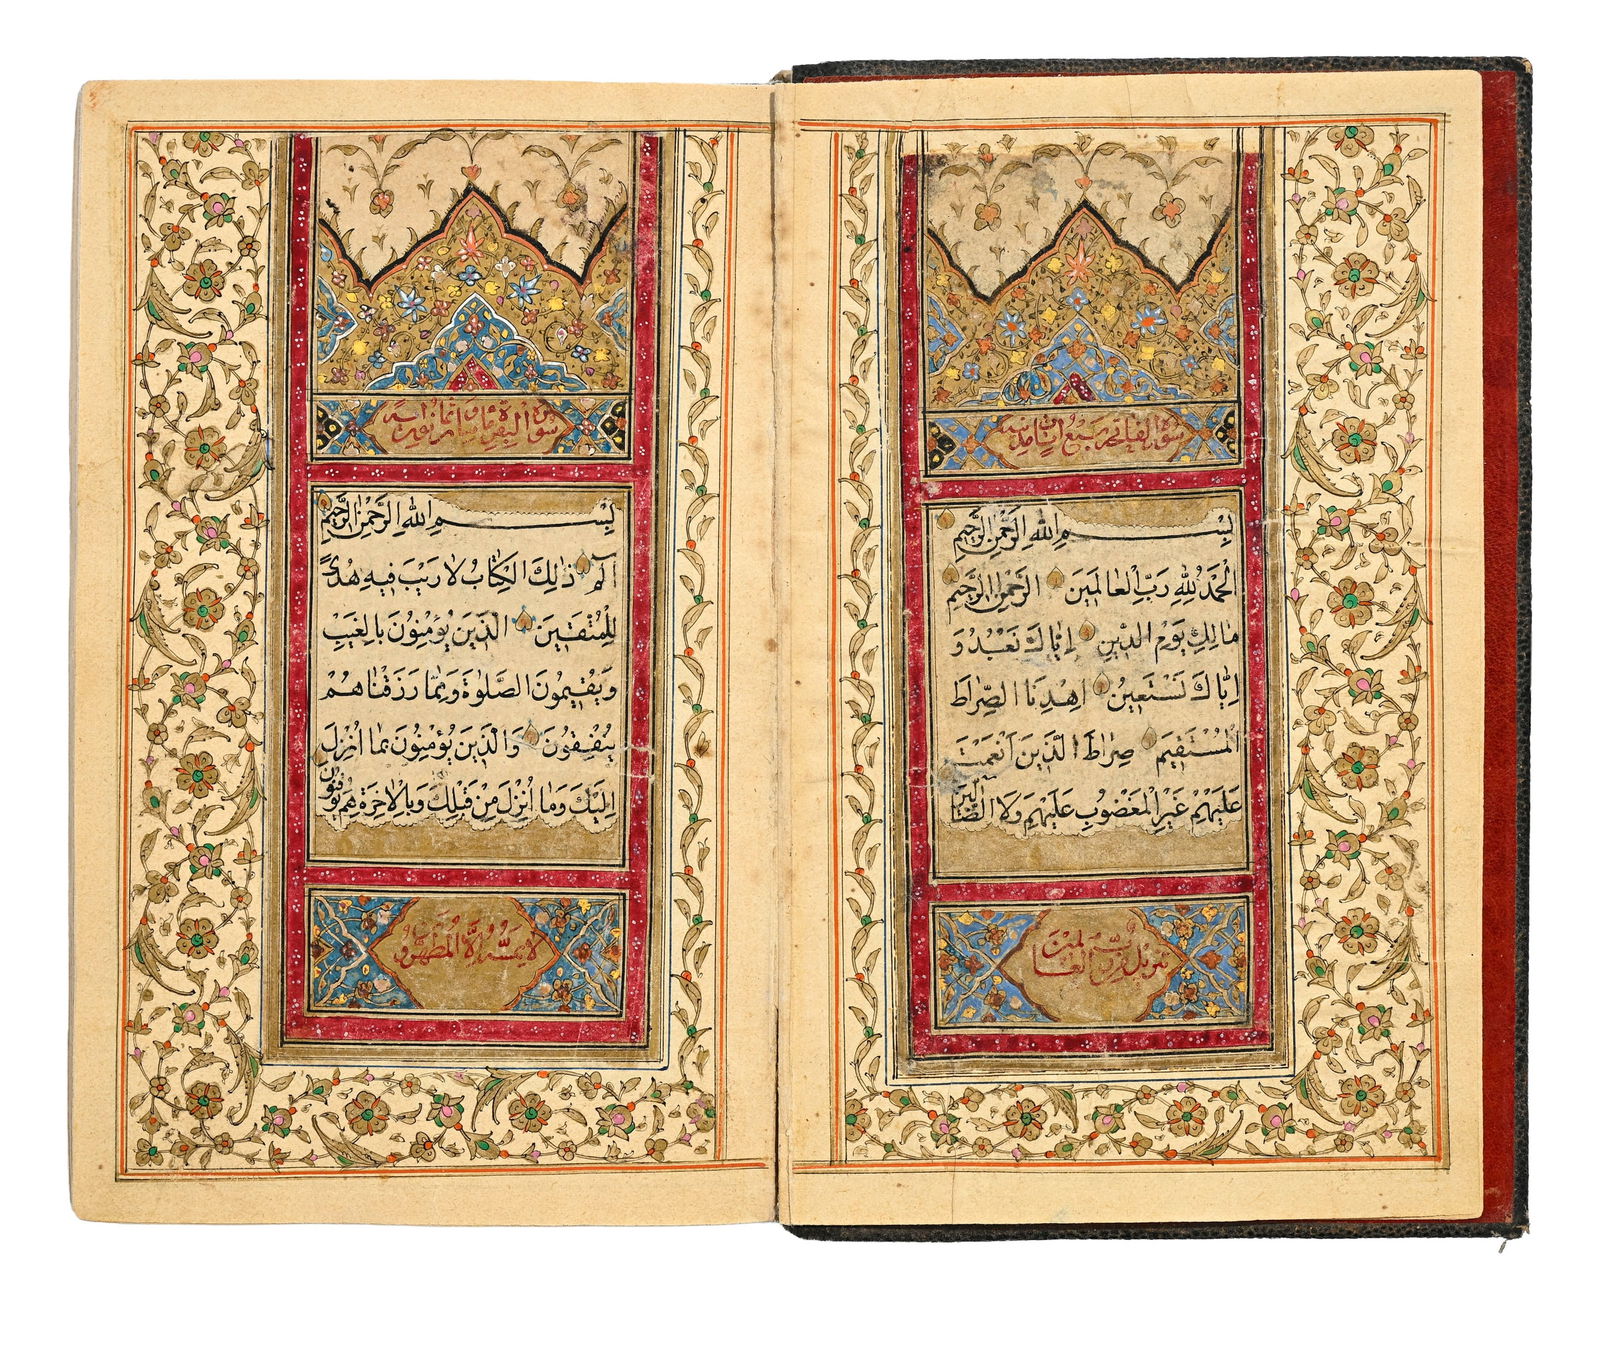 سورة الفاتحة سبع آيات مدنية
بِسْمِ اللهِ الرَّحْمٰنِ الرَّحِيْمِ
اَلْحَمْدُ لِلّٰهِ رَبِّ الْعَالَمِيْنَ الرَّحْمٰنِ الرَّحِيْمِ
مَالِكِ يَوْمِ الدِّيْنِ اِيَّاكَ نَعْبُدُ وَ
اِيَّاكَ نَسْتَعِيْنُ اِهْدِنَا الصِّرَاطَ
الْمُسْتَقِيْمَ صِرَاطَ الَّذِيْنَ اَنْعَمْتَ
عَلَيْهِمْ غَيْرِ الْمَغْضُوْبِ عَلَيْهِمْ وَلَا الضَّالِّيْنَ
تنزيل من رب العالمين
سورة البقرة مائتان
بِسْمِ اللهِ الرَّحْمٰنِ الرَّحِيْمِ
الٓمٓ ذٰلِكَ الْكِتَابُ لَا رَيْبَ فِيْهِ هُدًى
لِلْمُتَّقِيْنَ الَّذِيْنَ يُؤْمِنُوْنَ بِالْغَيْبِ
وَيُقِيْمُوْنَ الصَّلٰوةَ وَمِمَّا رَزَقْنَاهُمْ
يُنْفِقُوْنَ وَالَّذِيْنَ يُؤْمِنُوْنَ بِمَا اُنْزِلَ
اِلَيْكَ وَمَا اُنْزِلَ مِنْ قَبْلِكَ وَبِالْاٰخِرَةِ هُمْ يُوْقِنُوْنَ
لا يمسه الا المطهرون